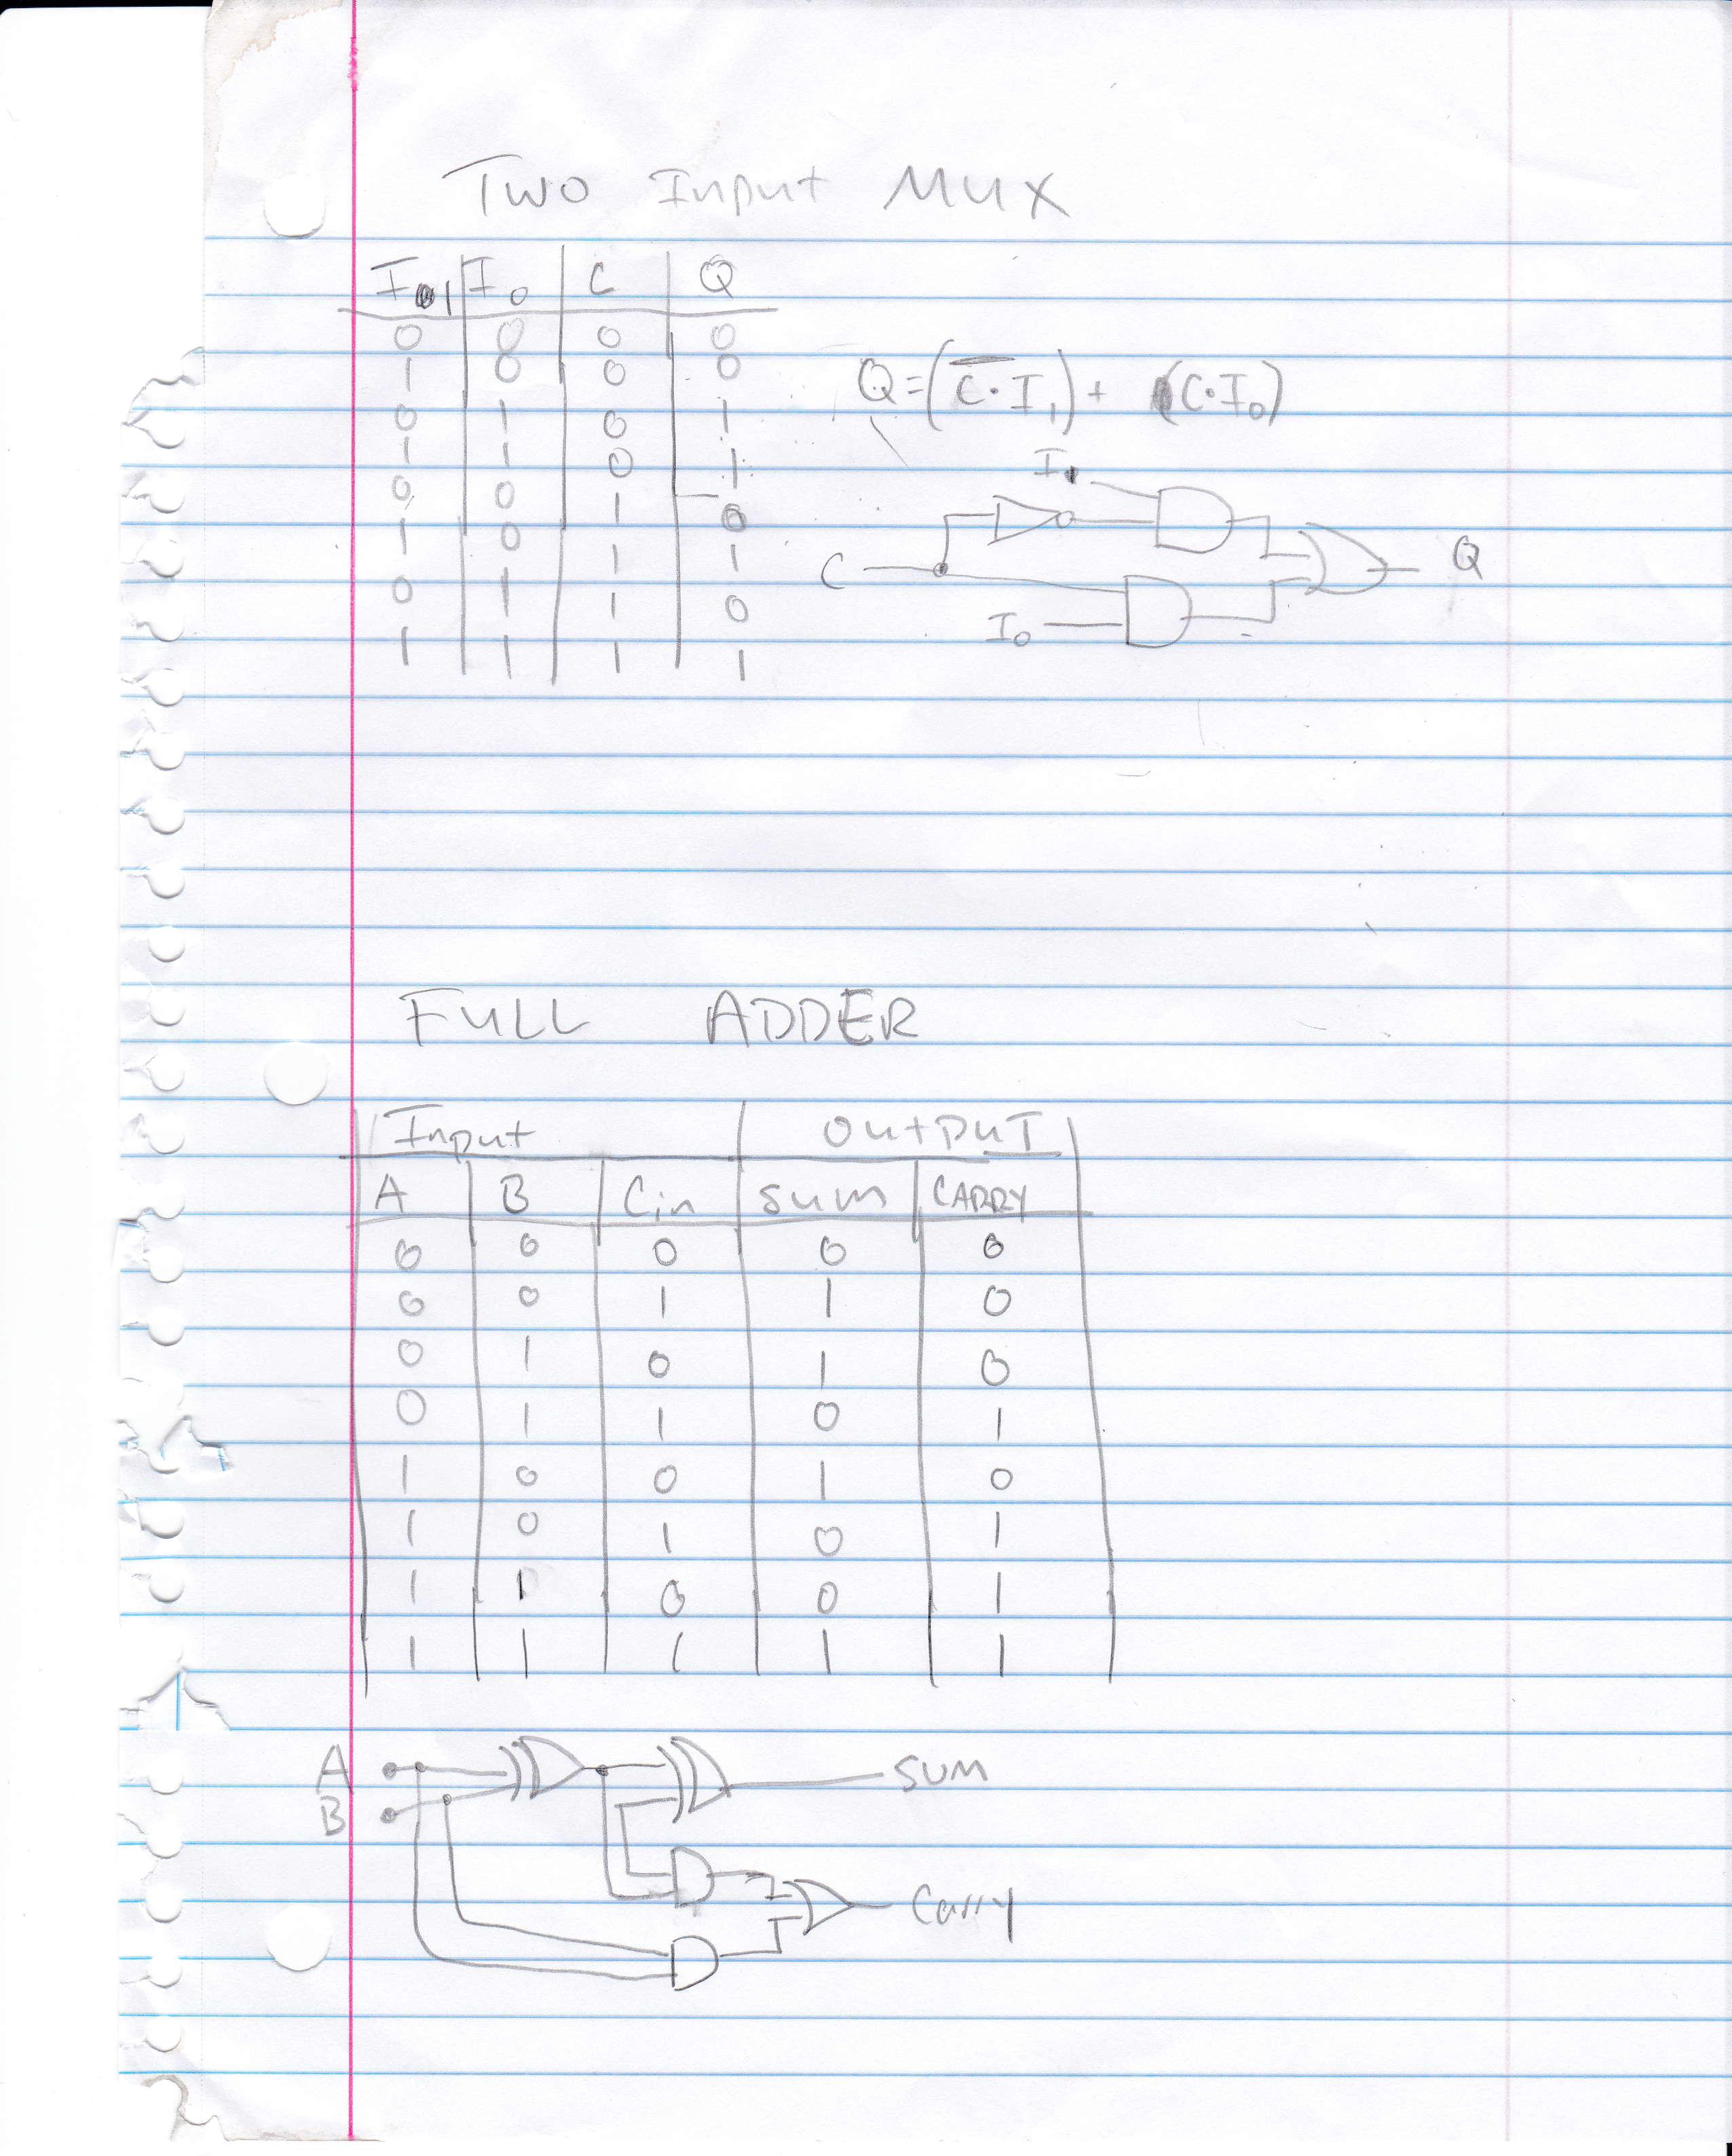 Two Input MUX
I1 I0 C Q
0 0 0 0
1 0 0 0
0 1 0 1
1 1 0 1
0 0 1 0
1 0 1 1
0 1 1 0
1 1 1 1
Q=(C̅·I1)+ (C·I0)
I1
C Q
I0
FULL ADDER
Input OutpuT
A B Cin sum CARRY
0 0 0 0 0
0 0 1 1 0
0 1 0 1 0
0 1 1 0 1
1 0 0 1 0
1 0 1 0 1
1 1 0 0 1
1 1 1 1 1
A SUM
B
Carry